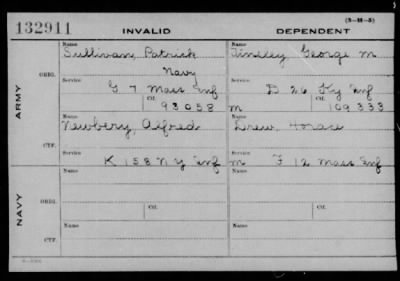 132911 INVALID DEPENDENT (3-M-5)
Name Name
Sullivan, Patrick Tinsley George M
Navy
ARMY
ORIG. Service Service
G 7 Mass Inf D 26 Ky Inf
Ctf. Ctf.
93058 m 109333
Name Name
Newbery, Alfred Drew, Horace
CTF. Service Service
K 158 N Y Inf m F 12 Mass Inf
NAVY
Name Name
ORIG. Ctf. Ctf.
Name Name
CTF.